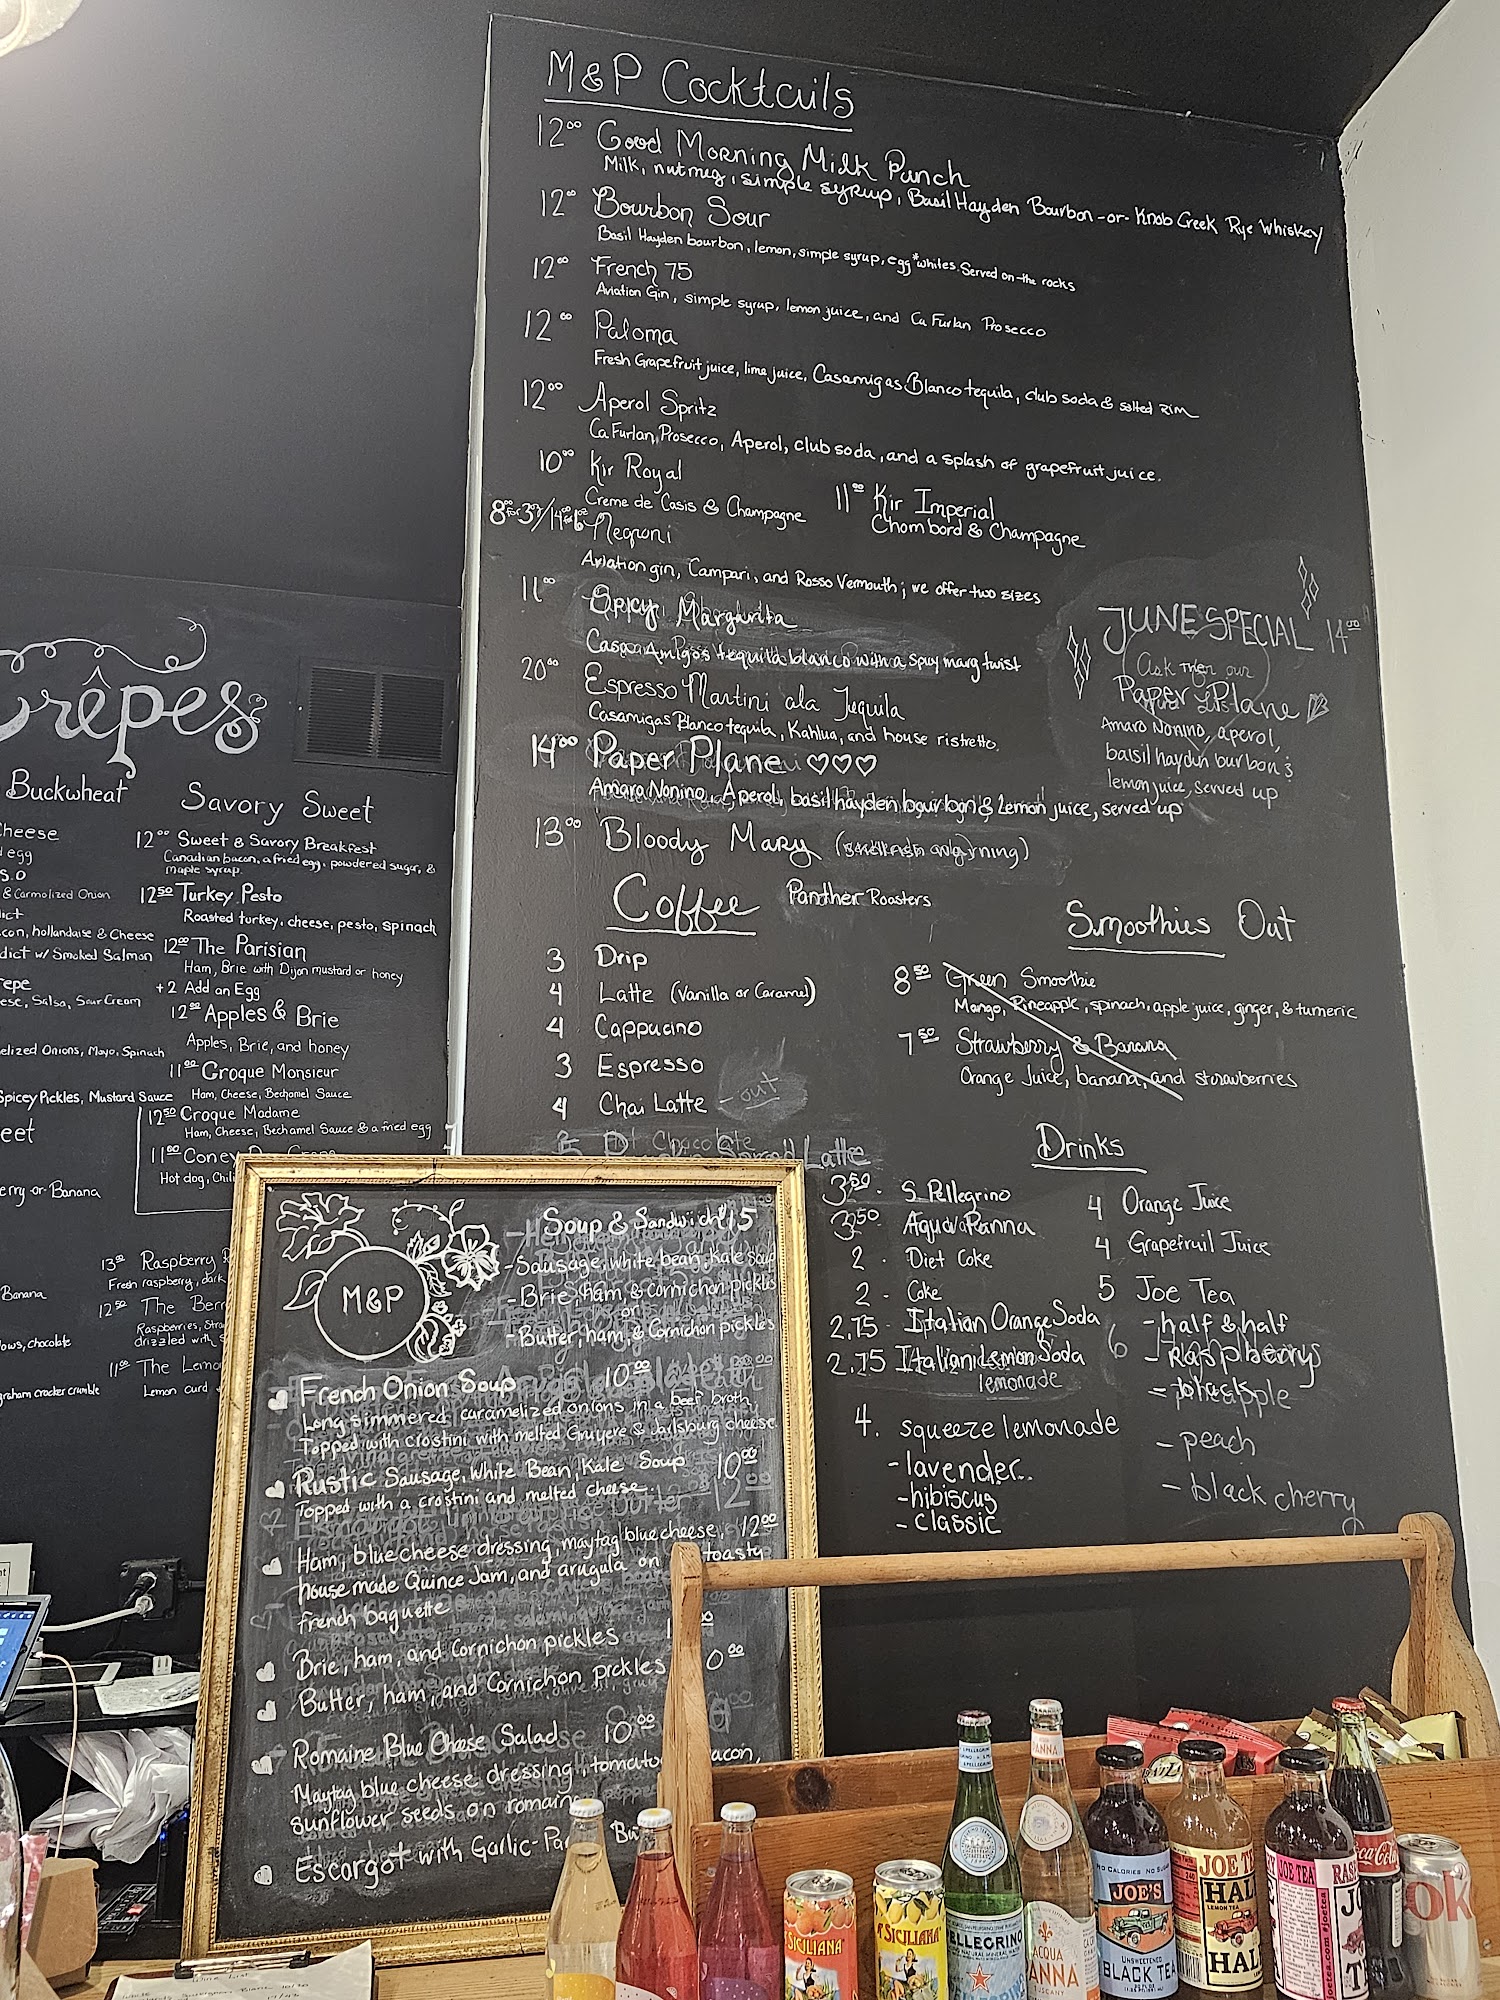 M&P Cocktails
12⁰⁰ Good Morning Milk Punch
Milk, nutmeg, simple syrup, Basil Hayden Bourbon -or- Knob Creek Rye Whiskey
12⁰⁰ Bourbon Sour
Basil Hayden bourbon, lemon, simple syrup, egg*whites. Served on the rocks
12⁰⁰ French 75
Aviation Gin, simple syrup, lemon juice, and Ca Furlan Prosecco
12⁰⁰ Paloma
Fresh Grapefruit juice, lime juice, Casamigas Blanco tequila, club soda & salted rim
12⁰⁰ Aperol Spritz
Ca Furlan, Prosecco, Aperol, club soda, and a splash of grapefruit juice.
10⁰⁰ Kir Royal
Creme de Casis & Champagne
11⁰⁰ Kir Imperial
Chombord & Champagne
Negroni
Aviation gin, Campari, and Rosso Vermouth; we offer two sizes
11⁰⁰ Spicy Margarita
Casa Amigos tequila blanco with a spicy marg twist
20⁰⁰ Espresso Martini ala Tequila
Casamigas Blanco tequila, Kahlua, and house ristretto.
14⁰⁰ Paper Plane ♡♡♡
Amaro Nonino, Aperol, basil hayden bourbon & Lemon juice, served up
13⁰⁰ Bloody Mary
JUNE SPECIAL 14⁰⁰
Paper Plane
Amaro Nonino, aperol,
basil haydin burbon &
lemon juice, served up
Coffee Panther Roasters
3 Drip
4 Latte (Vanilla or Caramel)
4 Cappucino
3 Espresso
4 Chai Latte - out
Hot Chocolate
Latte
Smoothies Out
8⁵⁰ Green Smoothie
Mango, Pineapple, spinach, apple juice, ginger, & tumeric
7⁵⁰ Strawberry & Banana
Orange Juice, banana, and strawberries
Drinks
3⁵⁰ - S. Pellegrino
3⁵⁰ - Aqua Panna
2 - Diet Coke
2 - Coke
2.75 - Italian Orange Soda
2.75 Italian Lemon Soda
lemonade
4. squeeze lemonade
- lavender
- hibiscus
- classic
4 Orange Juice
4 Grapefruit Juice
5 Joe Tea
- half & half
- Raspberry
- peach
- black cherry
Crêpes
Buckwheat
Cheese
egg
& Carmolized Onion
con, hollandaise & Cheese
dict w/ Smoked Salmon
ese, Salsa, Sour Cream
elized Onions, Mayo, Spinach
Spicey Pickles, Mustard Sauce
eet
erry or Banana
Banana
ows, chocolate
graham cracker crumble
Savory Sweet
12⁰⁰ Sweet & Savory Breakfast
Canadian bacon, a fried egg, powdered sugar, &
maple syrup.
12⁵⁰ Turkey Pesto
Roasted turkey, cheese, pesto, spinach
12⁰⁰ The Parisian
Ham, Brie with Dijon mustard or honey
+2 Add an Egg
12⁰⁰ Apples & Brie
Apples, Brie, and honey
11⁰⁰ Croque Monsieur
Ham, Cheese, Bechamel Sauce
12⁵⁰ Croque Madame
Ham, Cheese, Bechamel Sauce & a fried egg
11⁰⁰ Coney
Hot dog, Chili
Raspberry
Fresh raspberry, dark
12⁵⁰ The Berr
Raspberries, Stra
drizzled with
11⁰⁰ The Lemo
Lemon Curd
M&P
Soup & Sandwich 15
- Sausage, white bean, Kale Soup
- Brie, ham, & cornichon pickles
or
- Butter, ham, & Cornichon pickles
French Onion Soup 10⁰⁰
Long simmered caramelized onions in a beef broth
Topped with crostini with melted Gruyere & Jarlsburg cheese
Rustic Sausage, White Bean, Kale Soup 10⁰⁰
Topped with a crostini and melted cheese.
Ham, blue cheese dressing, maytag blue cheese, 12⁰⁰
house made Quince Jam, and arugula on toasty
french baguette
Brie, ham, and Cornichon pickles
Butter, ham, and Cornichon pickles
Romaine Blue Cheese Salad 10⁰⁰
Maytag blue cheese dressing, tomato bacon,
sunflower seeds on romaine
Escargot with Garlic
SICILIANA
A'SICILIANA
S.PELLEGRINO
ACQUA
PANNA
TUSCANY
NO CALORIES NO SUGAR
JOE'S
UNSWEETENED
BLACK TEA
JOE TEA
HALF
LEMON TEA
HALF
JOE TEA
Coca-Cola